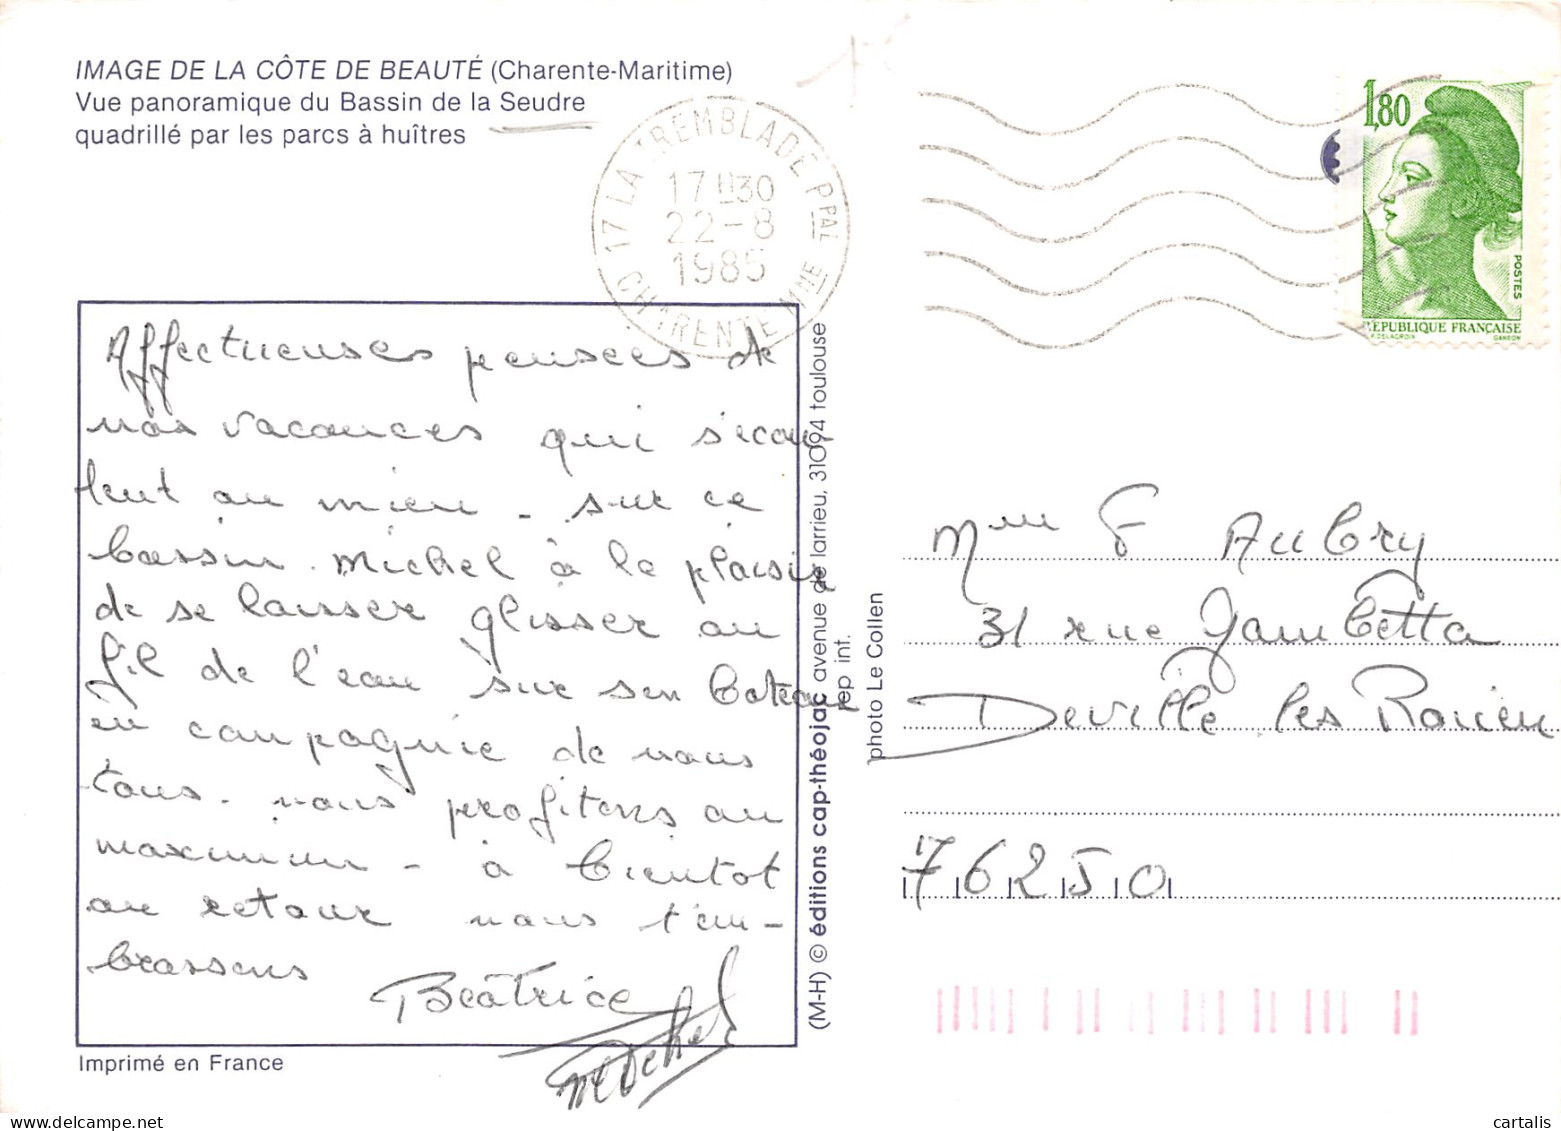 IMAGE DE LA CÔTE DE BEAUTÉ (Charente-Maritime)
Vue panoramique du Bassin de la Seudre
quadrillé par les parcs à huîtres
17 LA TREMBLADE PPAL
17H30
22-8
1985
CHARENTE MME
1,80
POSTES
REPUBLIQUE FRANÇAISE
DELACROIX GANDON
Affectueuses pensées de
nos vacances qui s'écou
lent au mieu - sur ce
bassin. Michel à le plaisir
de se laisser glisser au
fil de l'eau sur son bateau
en compagnie de nous
tous. nous profitons au
maximum - à bientot
au retour nous t'em-
brassons
Beâtrice
Michel
Imprimé en France
(M-H) © éditions cap-théojac avenue de larrieu, 31094 toulouse
rep int.
photo Le Collen
Mme F Aubry
31 rue Gambetta
Deville les Rouen
76250
cartalis
www.delcampe.net